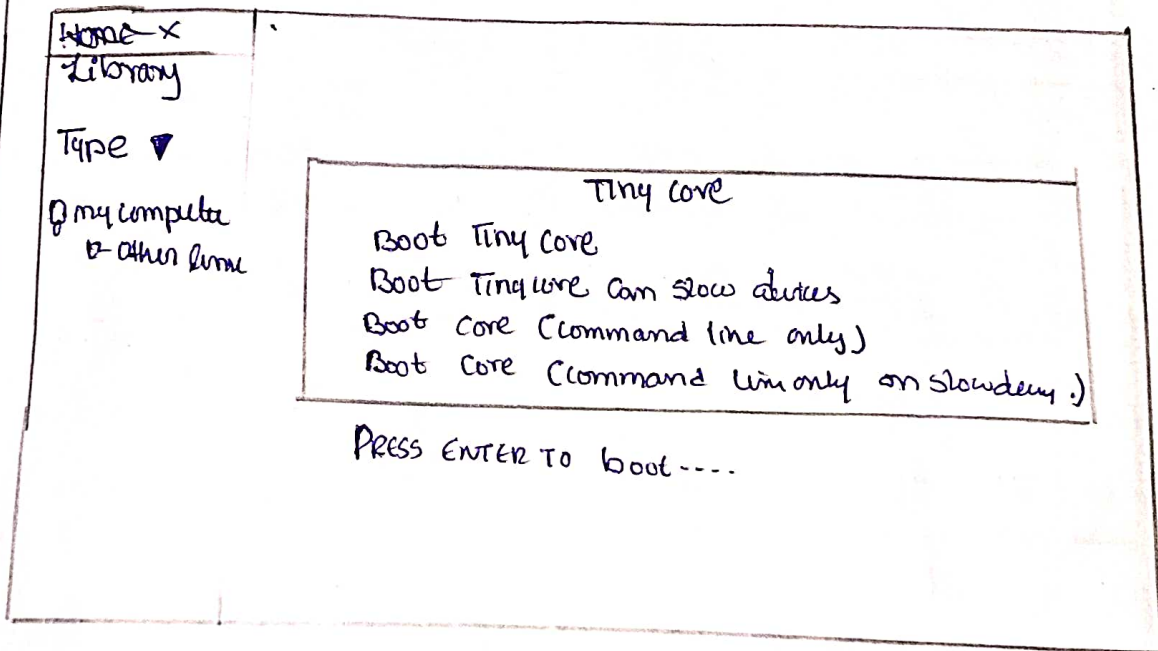 Home X
Library
Type ▼
my computer
other
Tiny core
Boot Tiny core
Boot Tiny core slow devices
Boot core (command line only)
Boot core (command line only on slow
PRESS ENTER TO boot ----